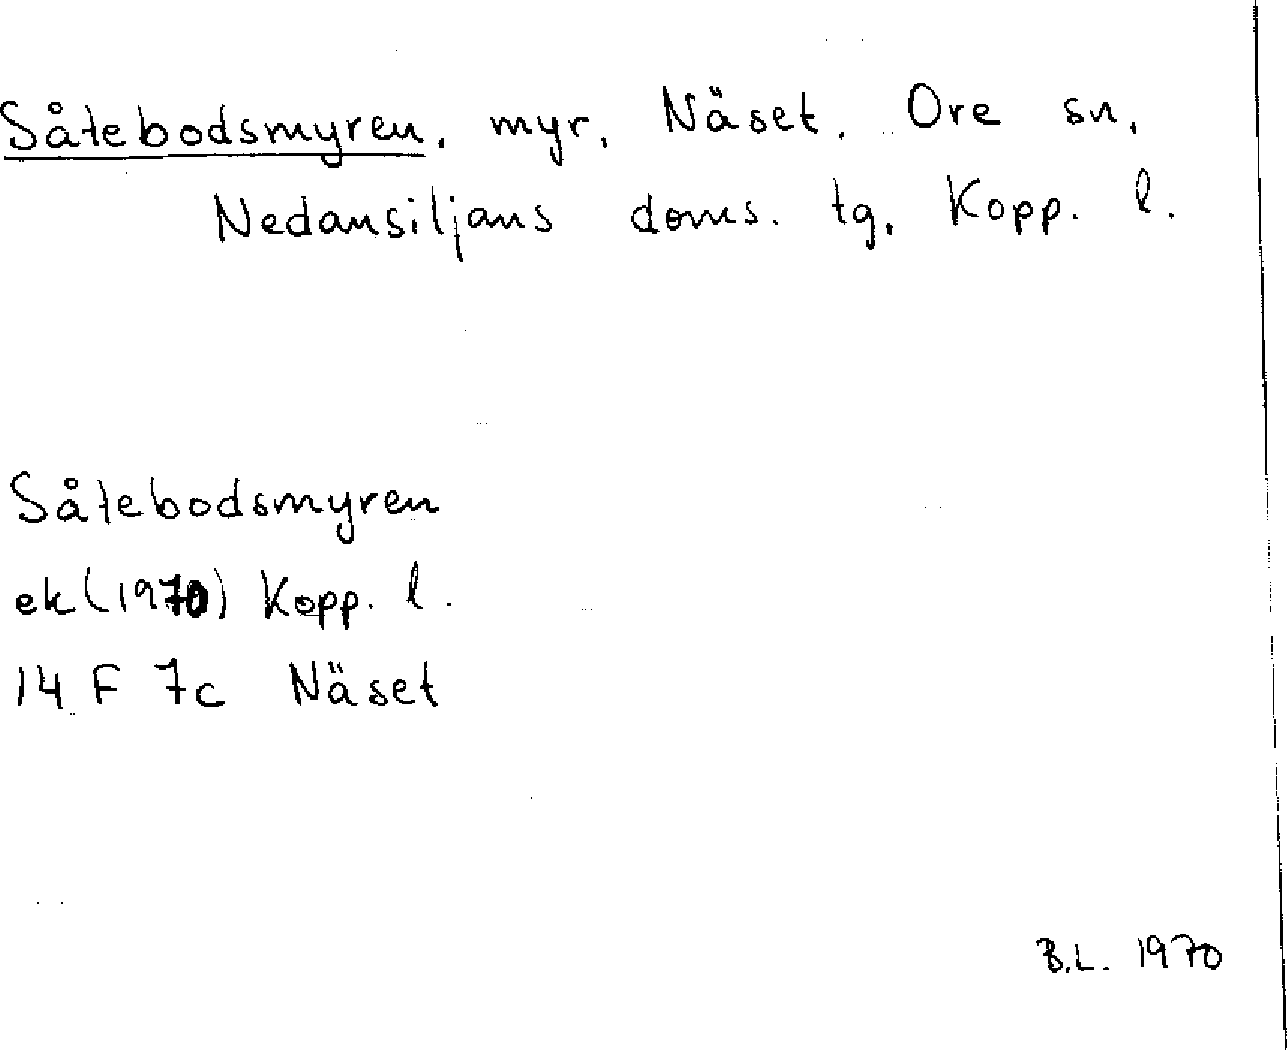 Såtebodsmyren, myr, Näset, Ore sn,
Nedansiljans doms. tg, Kopp. l.
Såtebodsmyren
ek (1970) Kopp. l.
14 F 7c Näset
B.L. 1970